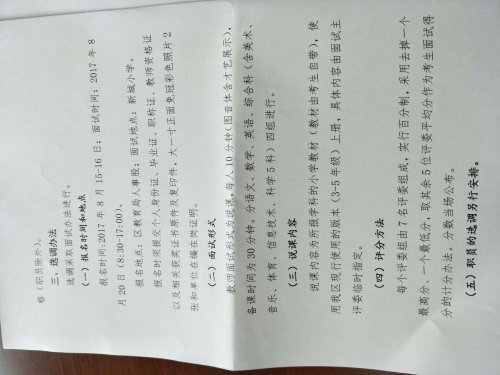 格（职员除外）。
三、选调办法
选调采取面试办法进行。
（一）报名时间和地点
报名时间:2017 年 8 月 15-16 日；面试时间：2017 年 8
月 20 日（8:30-17:00）。
报名地点：区教育局人事股；面试地点：新城小学。
报名时须提交个人身份证、毕业证、职称证、教师资格证
以及相关获奖证书原件及复印件，大一寸正面免冠彩色照片 2
张和单位在编在岗证明。
（二）面试形式
教师面试形式为说课，每人 10 分钟（图音体含才艺展示），
备课时间为 30 分钟。分语文、数学、英语、综合科（含美术、
音乐、体育、信息技术、科学 5 科）四组进行。
（三）说课内容
说课内容为所报学科的小学教材（教材由考生自带），使
用我区现行使用的版本（3-5 年级）上册，具体内容由面试主
评委临时指定。
（四）评分方法
每个评委组由 7 名评委组成，实行百分制，采用去掉一个
最高分、一个最低分，取其余 5 位评委平均分作为考生面试得
分的计分办法。分数当场公布。
（五）职员的选调另行安排。